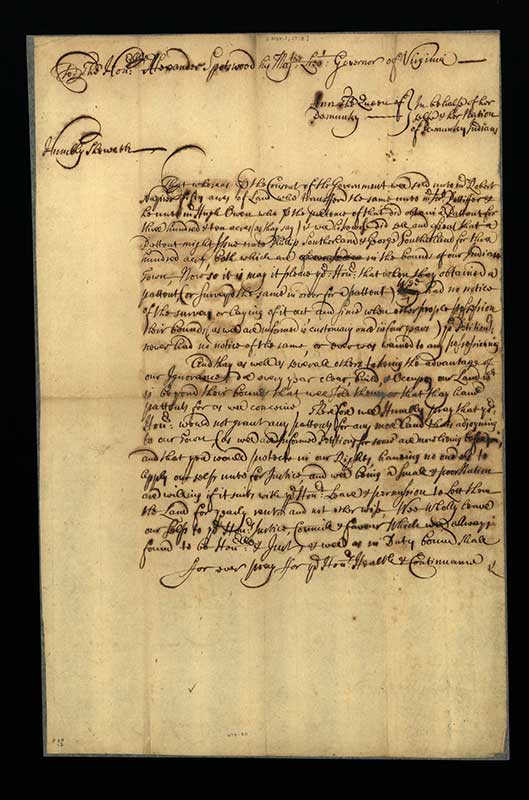 To The Hon:ble Alexander Spotswood his Maj:ties Leiu:t Governor of Virginia
Ann the Queen of
Pamunky
In behalfe of her
selfe & her Nation
of Pamunky Indians
Humbly Sheweth
That whereas by the Consent of the Government wee sold unto Robert
Napier fifty acres of Land who transferrd the same unto
he unto Hugh Owen who by the
three hundred & ten acres as they say
Pattent might Issue unto Phillip Southerland & George Southerland for three
hundred acres, both which are in the bounds of our Indian
Town Now so it is may it please yo:r Hon:r that when they obtained a
pattent (or Survey'd the same in order for a pattent) had no notice
of the survey or laying of it out and since when other people possession
their bounds, as wee are informed is customary once in four years yo:r Petition:rs
never had no notice of the same, or ever was warned to any possessioning
And they as well as severall others takeing the advantage of
our Ignorance, doe every year clear, build, & Occupy our Land
is beyond their bounds that wee sold them, or that they have
pattents for as wee conceive Therefore wee Humbly pray that yo:r
Hon:r would not grant any pattents for any more Land thats adjoyning
to our Town (as wee are Informed Petitions for some are now lieing before you)
and that you would protect us in our Rights, haveing no one else to
apply our selfs unto for Justice, and wee being a Small & poor Nation
are willing if it suits with yo:r Hon:rs Leave & permission to Lett them
the Land for yearly rents and not other wise, Wee Wholly Leave
our selfs to yo:r Hon:rs Justice, Councill & favour Which wee allways
found to be Hon:ble & Just, & as well as in Duty bound shall
for ever pray for yo:r Hon:rs Health & Continuance